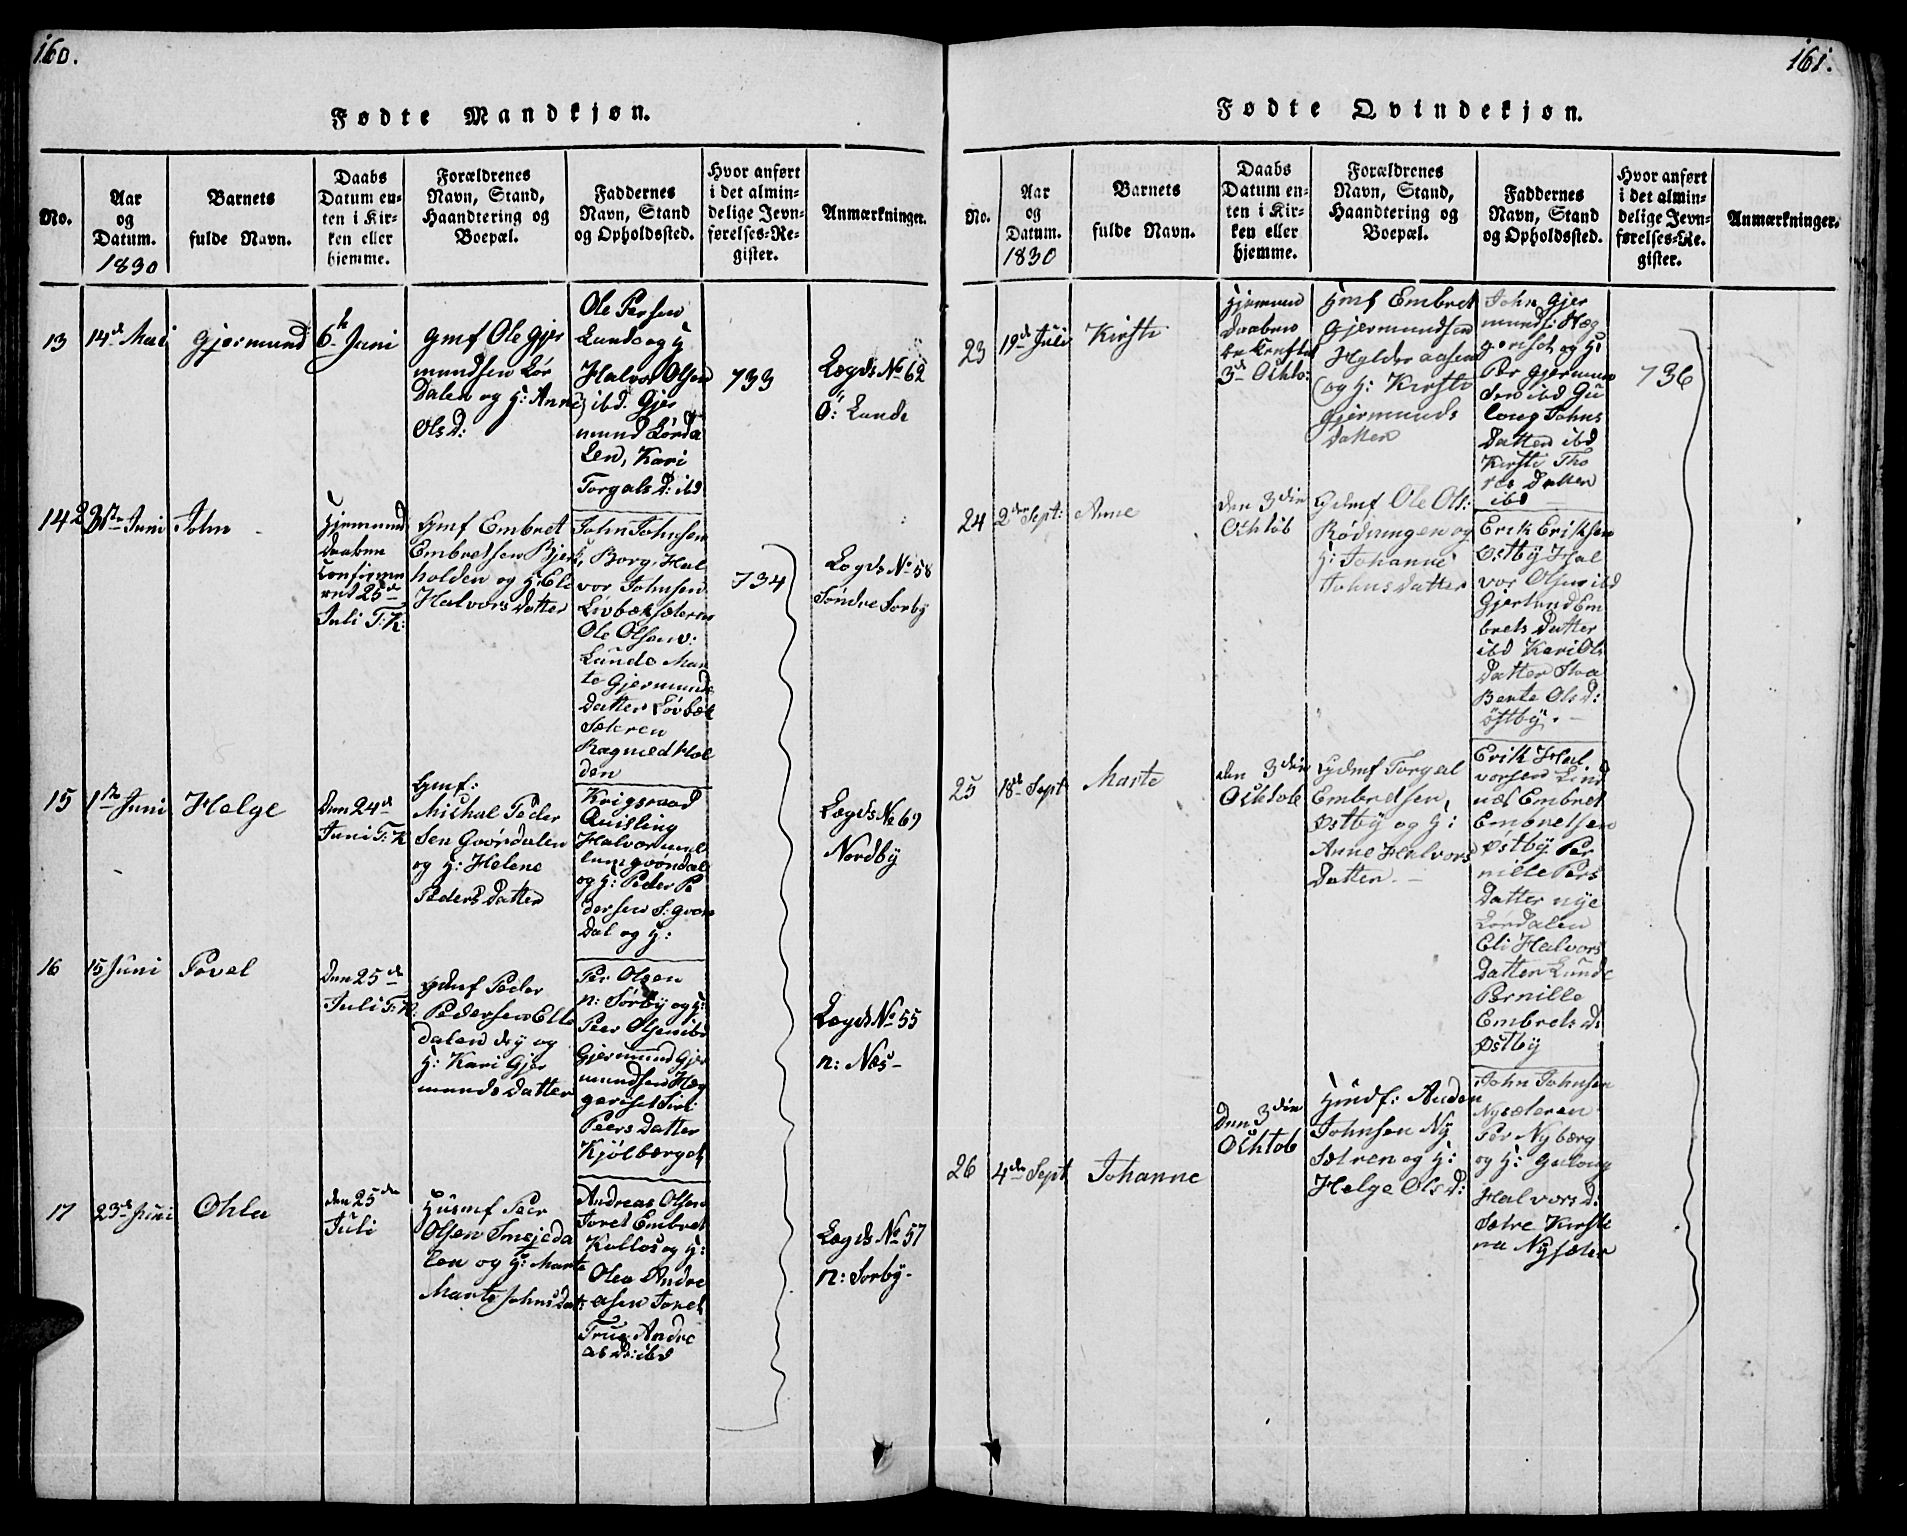 160.
Fødte Mandkjøn.
No.
Aar
og
Datum.
1830
Barnets
fulde Navn.
Daabs
Datum en-
ten i Kir-
ken eller
hjemme.
Forældrenes
Navn, Stand,
Haandtering og
Boepæl.
Faddernes
Navn, Stand
og Opholdssted.
Hvor anført
i det almin-
delige Jevn-
førelses-Re-
gister.
Anmærkninger.
13
14de Mai
Gjermund
6te Juni
Gmf Ole Gjer
mundsen Lør
Dalen og H: Anne
Ols D:
Ole Persen
Lunde og H
Halvor Olsen
ibd. Gjer
mund Lørda
len, Kari
Torgals D: ibd
733
Lægds No 62
Ø: Lunde
14
23de Juni
John
Hjemme
Daaben
Confirme
ret 25de
Juli T: K:
Gmf Embret
Embretsen Bjer
holden og H: Eli
Halvors Datter
John Johnsen
Borg, Hal
vor Johnsen
Løvbæksæteren
Ole Olsen v:
Lunde Mar
te Gjermunds
Datter Løvbæk
Sæteren
Ragnild Hol
den
734
Lægds No 58
Søndre Sorby
15
1te Juni
Helge
Den 24de
Juni T: K
Gmf:
Michal Peder
Sen Gvøndalen
og H: Helene
Peders Datter
Krigsraad
Quisling
Halvor
Gvøndal
og H: Peder Pe
dersen S: Gvøn
Dal og H:
Lægds No 69
Nordby
16
15 Juni
Povel
Den 25de
Juli T: K:
Gdmf Peder
Pedersen Elle
dalen og
H: Kari Gjer
munds Datter
Per Olsen
n: Sørby og H:
Peer Olsen ibd
Gjermund Gjer
mundsen Hæg
geriset Siri
Peers Datter
Kjølberget
Lægds No 55
n: Næs-
17
23de Juni
Ohle
den 25de
Juli
Husmf Peer
Olsen Smejeda
len og H: Marte
Marte Johnsdat:
Andreas Olsen
Joret Embret
Kollos og H:
Olea Andre
asen Joret
Trug Andre
as D: ibd
Lægds No 57
n: Sorby-
161.
Fødte Qvindekjøn.
No.
Aar
og
Datum.
1830
Barnets
fulde Navn.
Daabs
Datum en-
ten i Kir-
ken eller
hjemme.
Forældrenes
Navn, Stand,
Haandtering og
Boepæl.
Faddernes
Navn, Stand
og Opholdssted.
Hvor anført
i det almin-
delige Jevn-
førelses-Re.
gister.
Anmærkninger.
23
19de Juli
Kirsti
Hjemme
Daaben
be Kræfte
3de Ocktb:
Hmf Embret
Gjermundsen
Hylderaasen
og H: Kirsti
Gjermunds
Datter
John Gjer
munds: Hæg
geriset og H:
Per Gjermun
Sen ibd Gu
loug Johns
Datter ibd
Kirsti Tho
res Datter
ibd
736
24
2den Sept:
Anne
den 3die
Ocktob
Gdmf Ole Ols:
Rødningen og
H: Johanne
Johns datter
Erik Eriksen
Østby Hal
vor Olsen ibd
Gjertrud Em
brets Datter
ibd Kari Ols
Datter
Bente Ols D:
Østby. -
25
18de Sept
Marte
den 3die
Ocktob
Gdmf Torgal
Embretsen
Østby og H:
Anne Halvors
Datter -
Erik Hal
vorsen Lind
næs Embret
Embretsen
Østby Per
nille Pers
Datter nye
Lørdalen
Eli Halvors
Datter Lunde
Pernille
Embrets D:
Østby
26
4de Sept
Johanne
Den 3die
Ocktob
Hmdf: Anden
Johnsen Ny
Sætren og H:
Helge Ols D:
John Johnsen
Nysæteren
Per Nyberg
og H: Guloug
Halvors D:
Sætre Kirsti
na Nysæter